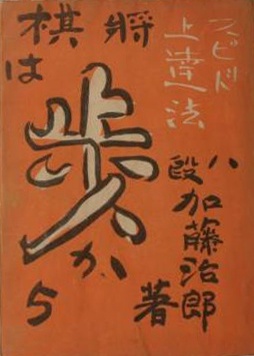 スピード
上達法
将棋は
歩から
八段加藤治郎著